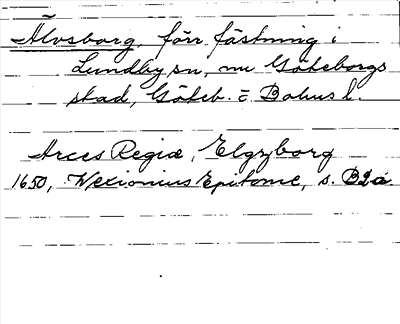 Älvsborg, förr fästning i
Lundby sn, nu Göteborgs
stad, Göteb. o. Bohus l.
Arces Regiæ, Elgzborg
1650, Wexionius Epitome, s. B2a.